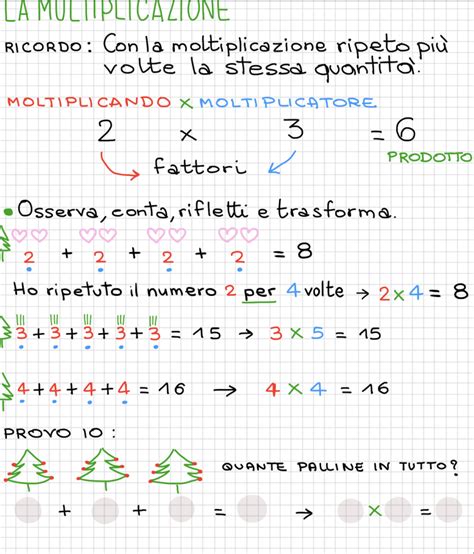 LA MOLTIPLICAZIONE
RICORDO: Con la moltiplicazione ripeto più
volte la stessa quantità.
MOLTIPLICANDO x MOLTIPLICATORE
2 x 3 = 6
fattori PRODOTTO
• Osserva, conta, rifletti e trasforma.
2 + 2 + 2 + 2 = 8
Ho ripetuto il numero 2 per 4 volte → 2x4 = 8
3 + 3 + 3 + 3 + 3 = 15 → 3 x 5 = 15
4 + 4 + 4 + 4 = 16 → 4 x 4 = 16
PROVO IO:
QUANTE PALLINE IN TUTTO?
+ + = → x =